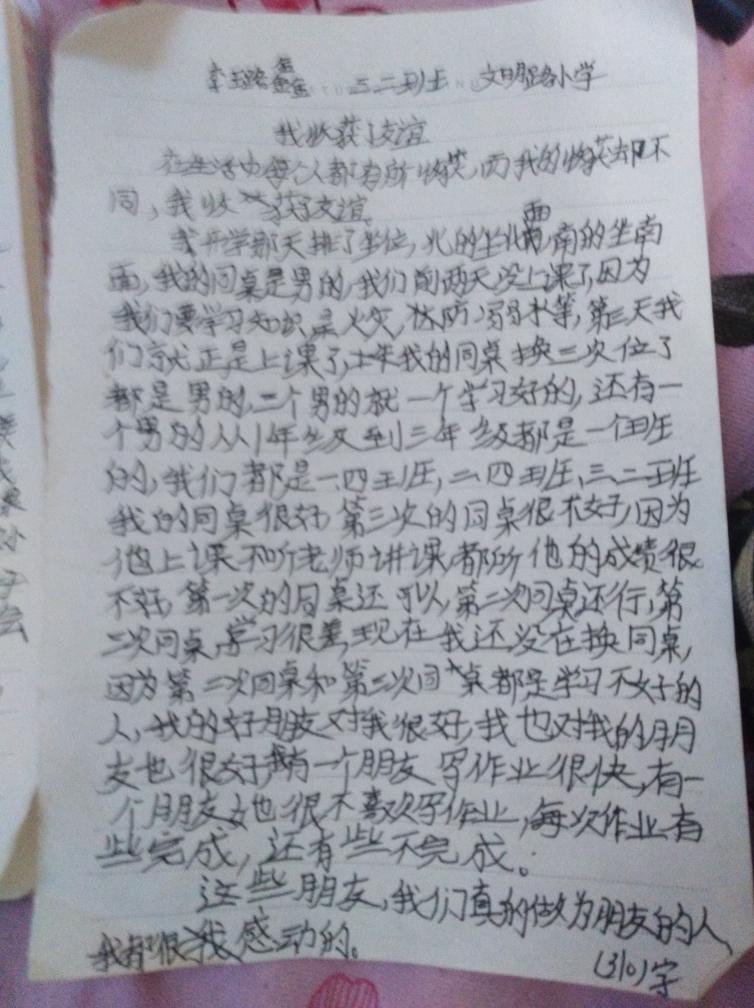 李玉路鑫 三二班 文明路小学
我收获了友谊
在生活中每个人都有所收获,而我的收获却不
同,我收获了友谊
我开学那天排了坐位,北的坐北面,南的坐南
面,我的同桌是男的,我们前两天没上课了,因为
我们要学习知识是火灾,松防溺水等,第三天我
们京尤正是上课了,上年我的同桌换三次位了
都是男的,二个男的就一个学习好的,还有一
个男的从1年级到三年级都是一个班
的,我们都是一.四班,二.四班,三.二班
我的同桌很好 第三次的同桌很不好,因为
他上课不听老师讲课,都所他的成绩很
不好,第一次的同桌还可以,第二次同桌还行,第
三次同桌,学习很差,现在我还没在换同桌,
因为第二次同桌和第三次同桌都是学习不好的
人,我的好朋友对我很好,我也对我的朋
友也很好,我有一个朋友写作业很快,有一
个朋友她很不喜欢写作业,每次作业有
些完成,还有些不完成。
这些朋友,我们真的做为朋友的人
我都很感动的。
(310)字